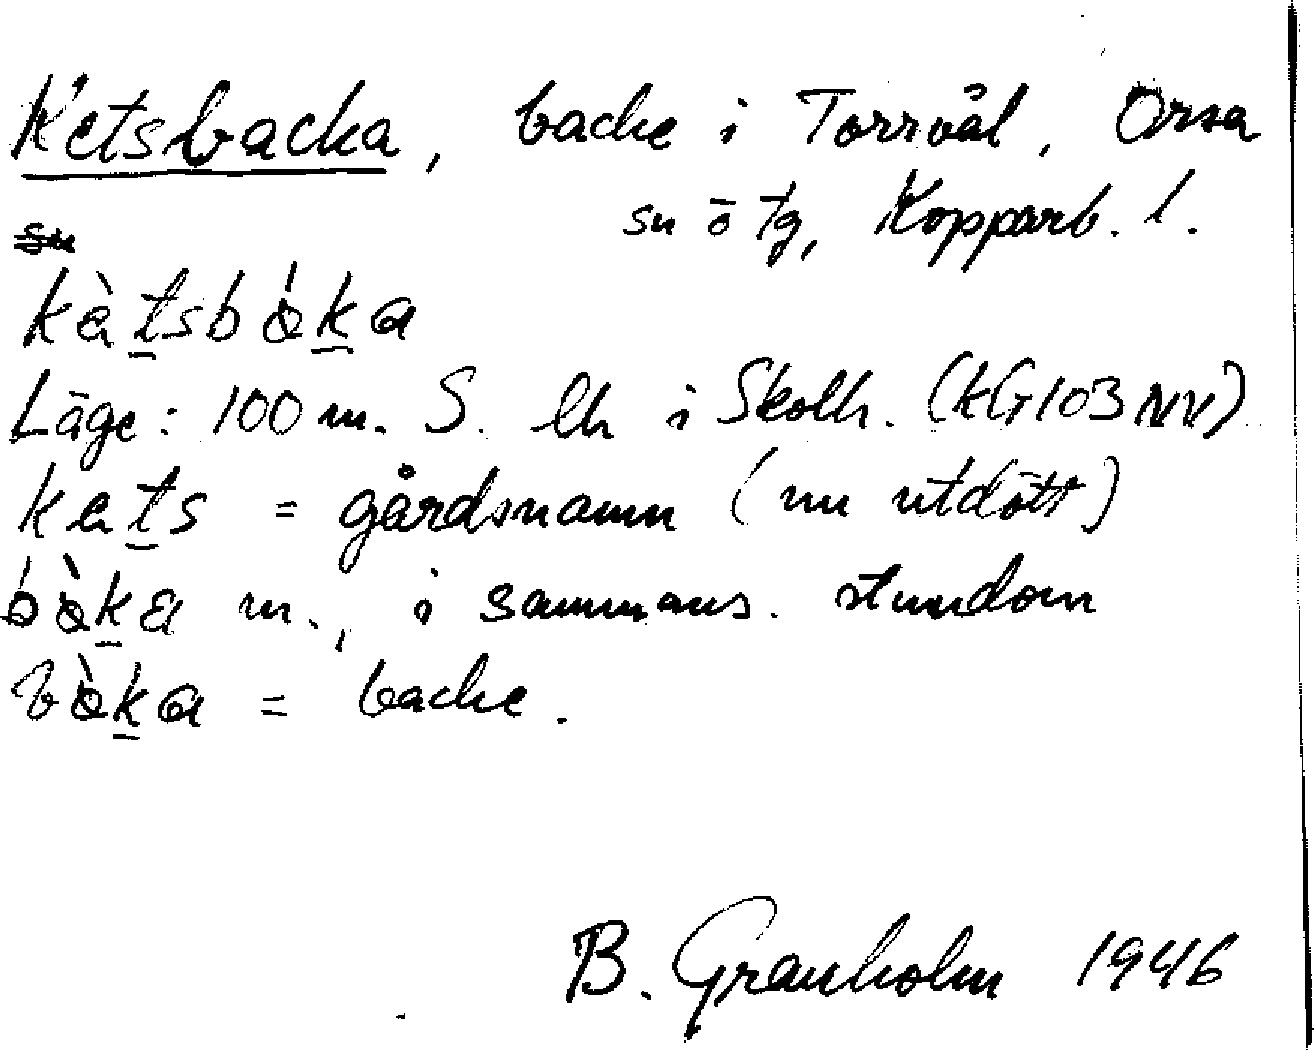 Ketsbacka, backe i Torrvål, Orsa
sn o tg, Kopparb. l.
kètsbàka
Läge: 100 m. S. lh i Skolh. (KG103NV)
kets = gårdsnamn (nu utdött)
bàka m., i sammans. stundom
bàka = backe.
B. Granholm 1946